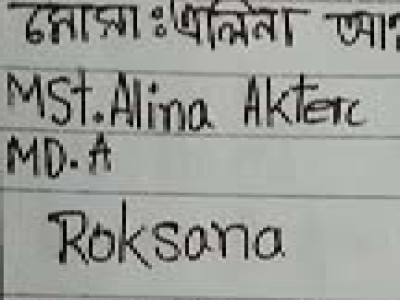 মোসা: এলিনা
MSt. Alina Akter
MD. A
Roksana